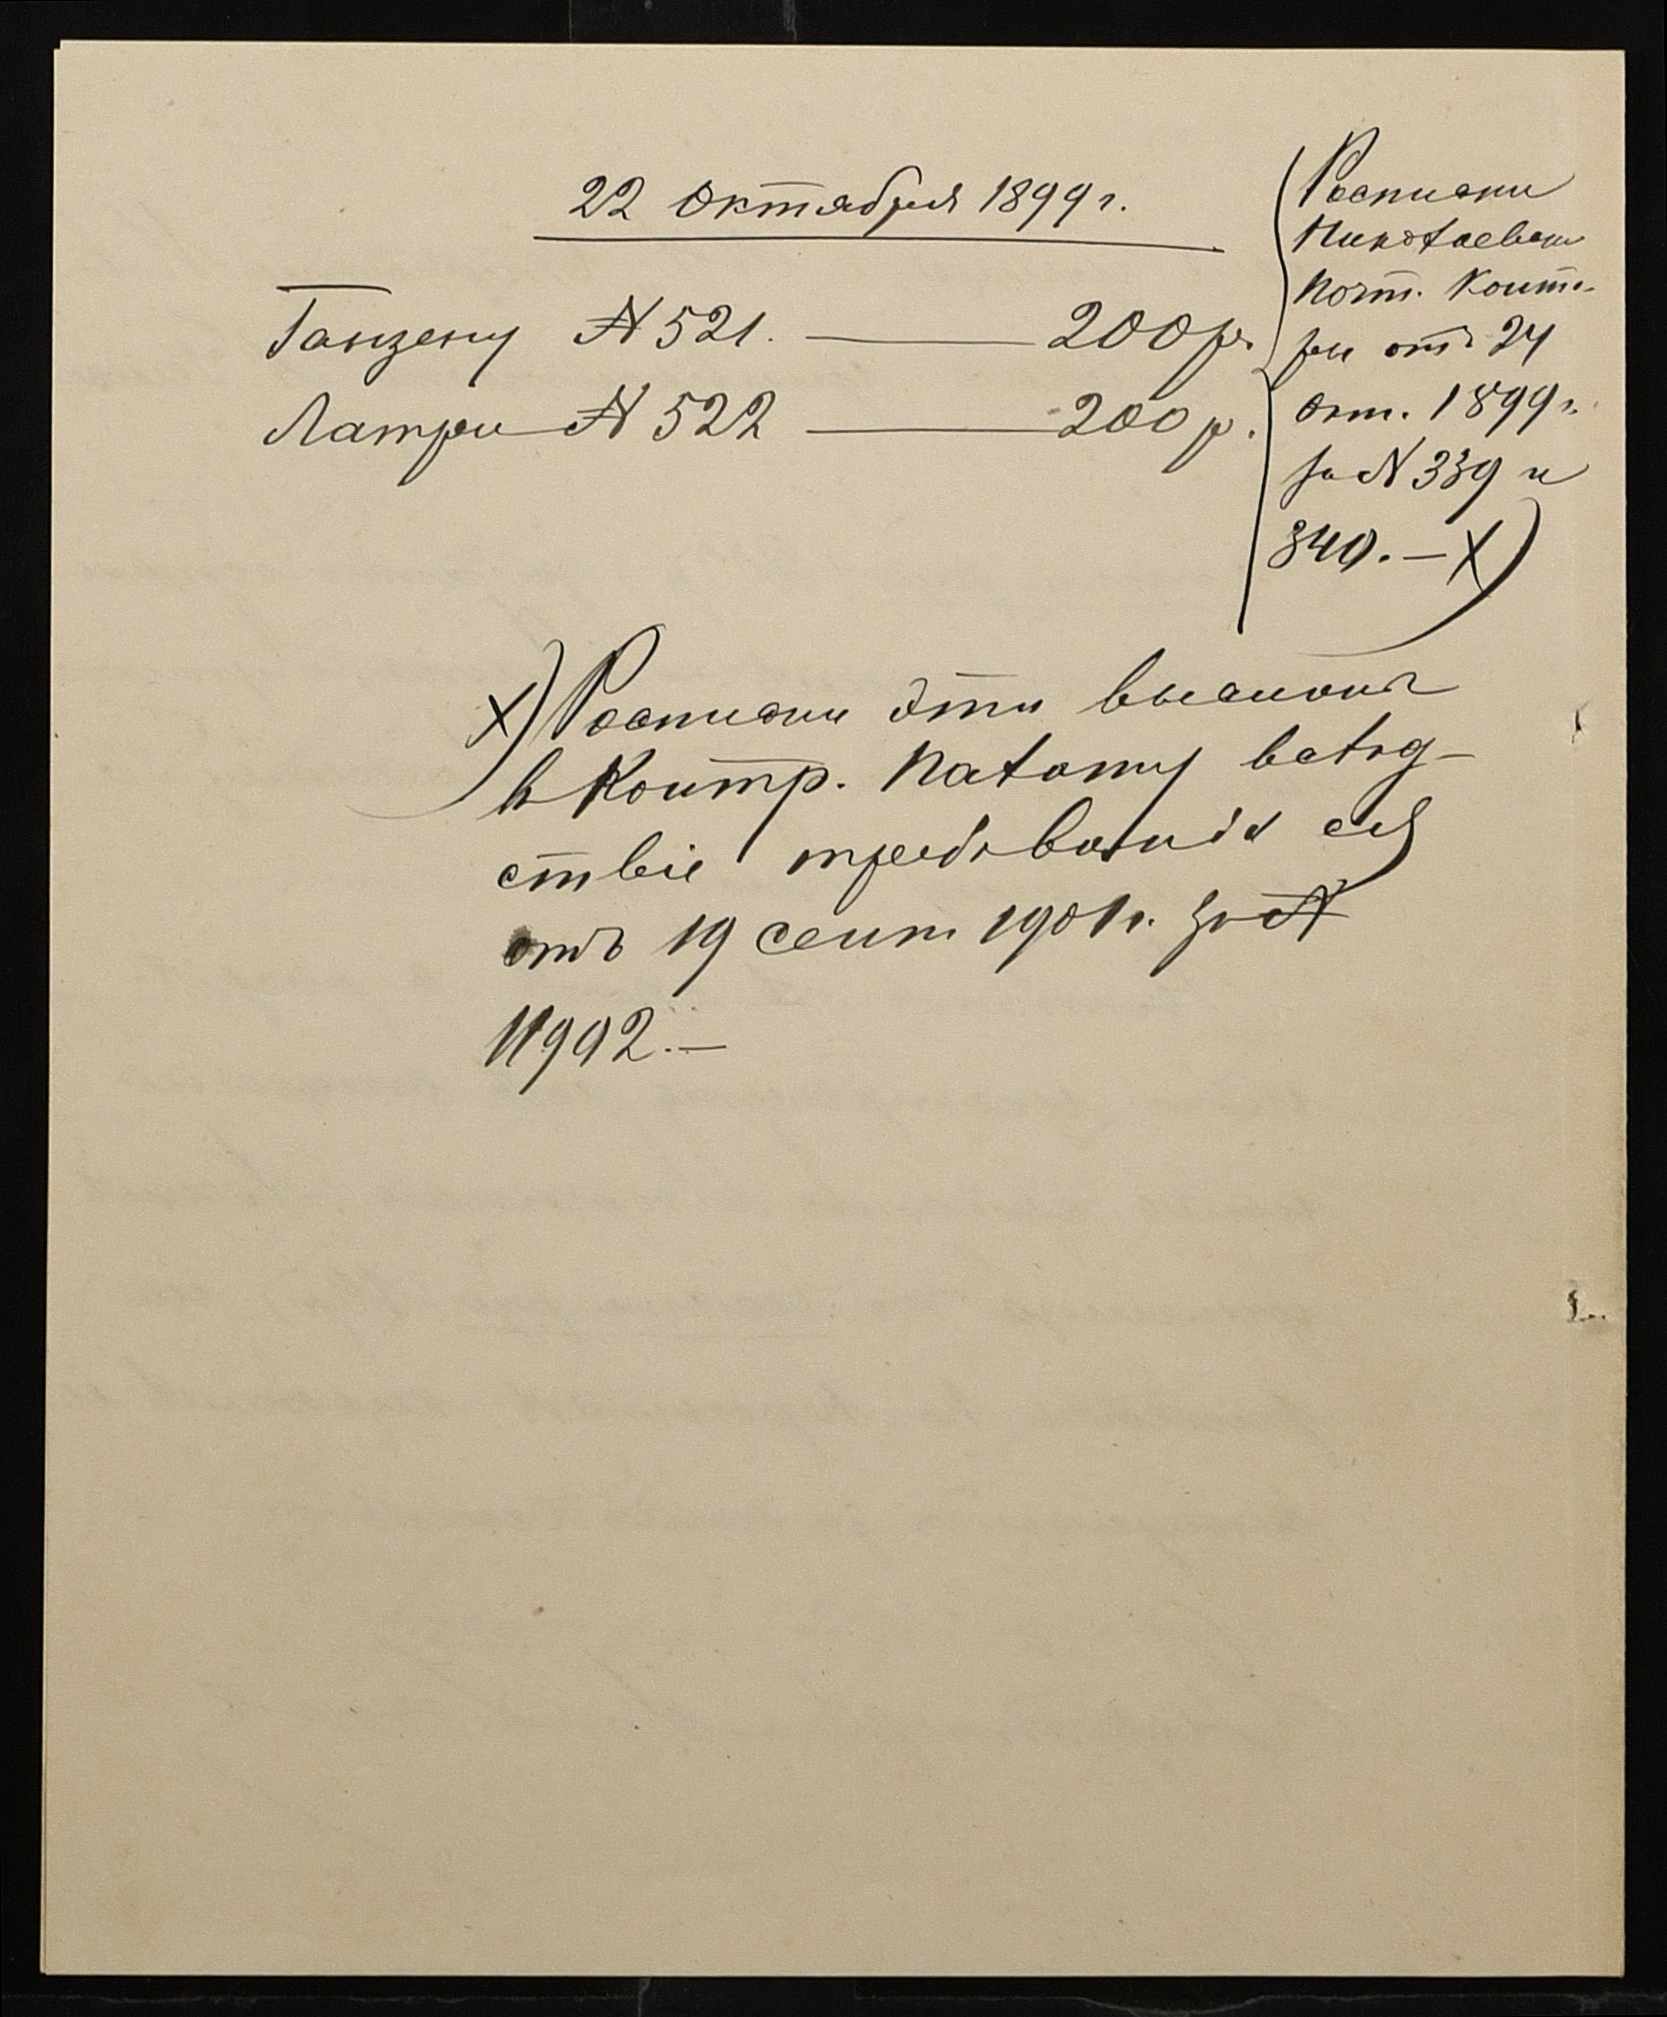 22 Октября 1899 г.
Ганзену № 521. — 200 р.
Латри № 522 — 200 р.
Росписки
Николаевск.
Почт. Конто-
ры отъ 24
Окт. 1899 г.
за № 339 и
340. — X)
X) Росписки эти высланы
в Контр. Палату вслѣд-
ствіе требованія ея
отъ 19 Сент. 1901 г. за №
11992. —